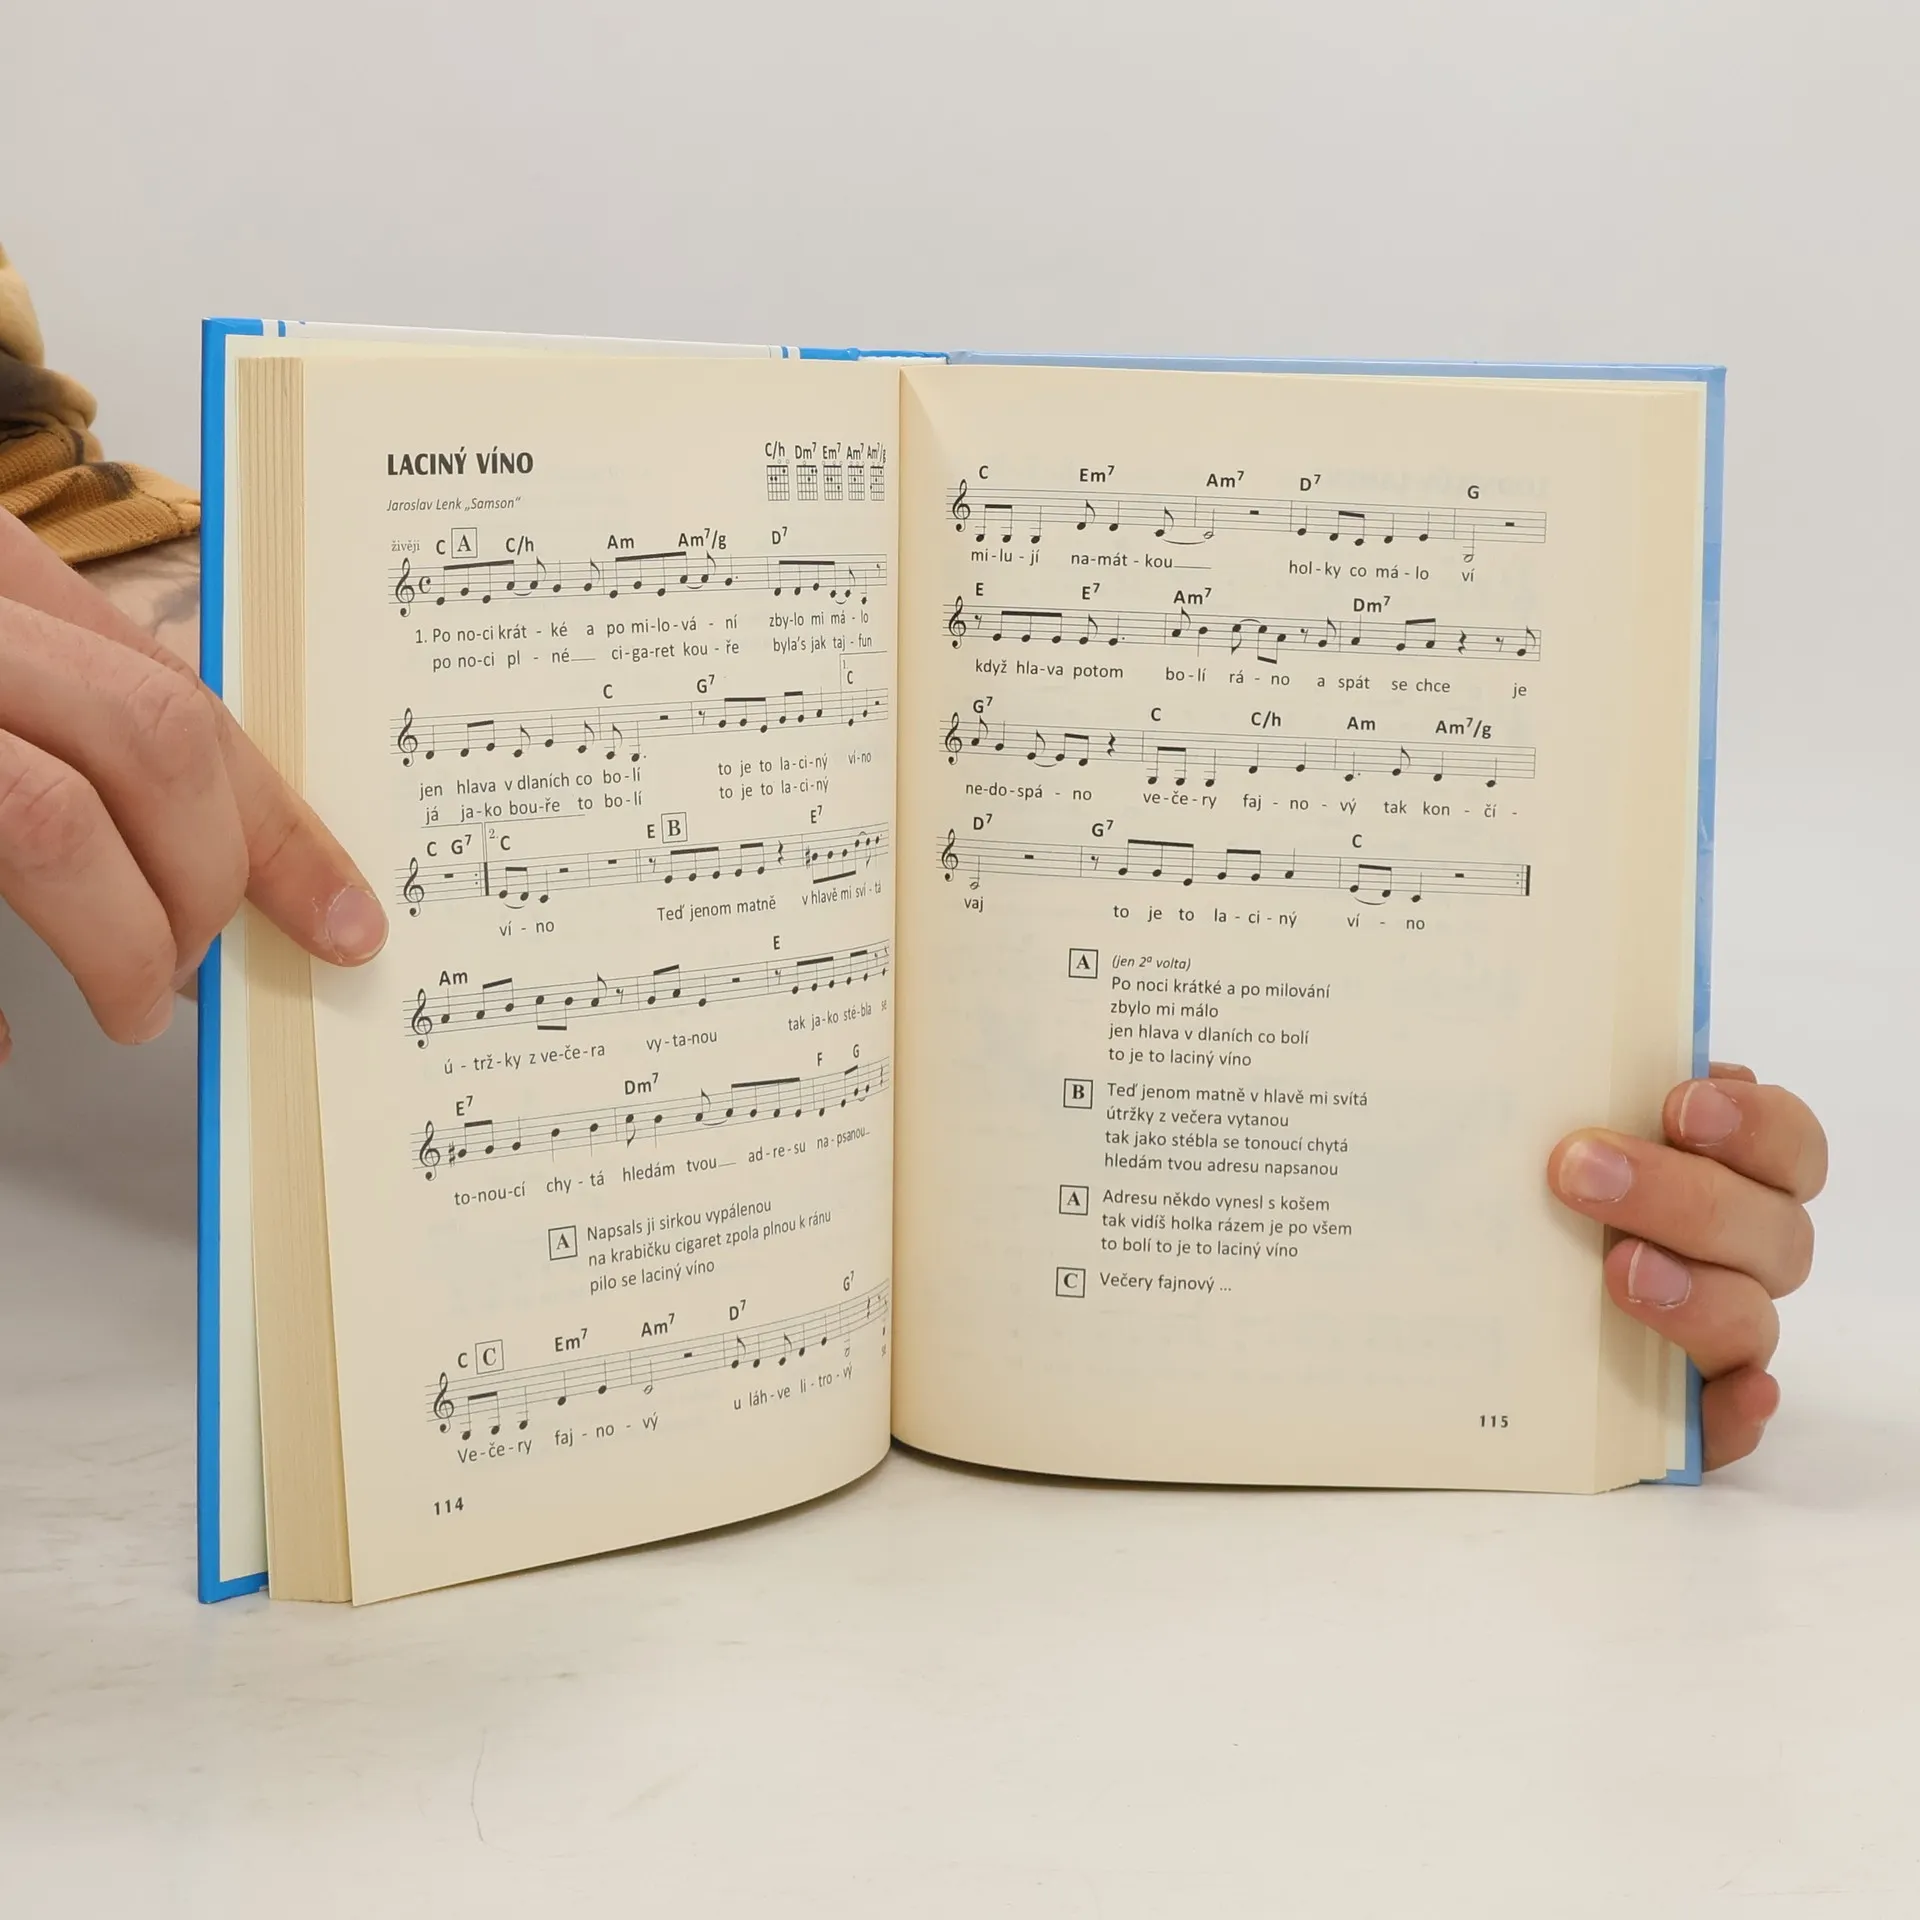 LACINÝ VÍNO
C/h Dm7 Em7 Am7 Am7/g
Jaroslav Lenk „Samson“
živěji C A C/h Am Am7/g D7
1. Po no-ci krát - ké a po mi-lo-vá - ní zby-lo mi má - lo
po no-ci pl - né__ ci-ga-ret kou - ře byla's jak taj - fun
C G7 1. C
jen hlava v dlaních co bo-lí to je to la-ci-ný ví-no
já ja-ko bou-ře to bo-lí to je to la-ci-ný
C G7 2. C E B E7
ví - no Teď jenom matně v hlavě mi sví - tá
Am E
ú - trž-ky z ve-če-ra vy-ta-nou tak ja-ko sté-bla se
E7 Dm7 F G
to-nou-cí chy - tá hledám tvou__ ad-re-su na-psanou_
A Napsals ji sirkou vypálenou
na krabičku cigaret zpola plnou k ránu
pilo se laciný víno
C C Em7 Am7 D7 G7
Ve-če-ry faj - no - vý u láh-ve li-tro-vý se
114
C Em7 Am7 D7 G
mi-lu-jí na-mát-kou__ hol-ky co má-lo ví
E E7 Am7 Dm7
když hla-va potom bo-lí rá - no a spát se chce je
G7 C C/h Am Am7/g
ne-do-spá - no ve-če-ry faj - no - vý tak kon - čí -
D7 G7 C
vaj to je to la - ci - ný ví - no
A (jen 2ª volta)
Po noci krátké a po milování
zbylo mi málo
jen hlava v dlaních co bolí
to je to laciný víno
B Teď jenom matně v hlavě mi svítá
útržky z večera vytanou
tak jako stébla se tonoucí chytá
hledám tvou adresu napsanou
A Adresu někdo vynesl s košem
tak vidíš holka rázem je po všem
to bolí to je to laciný víno
C Večery fajnový ...
115